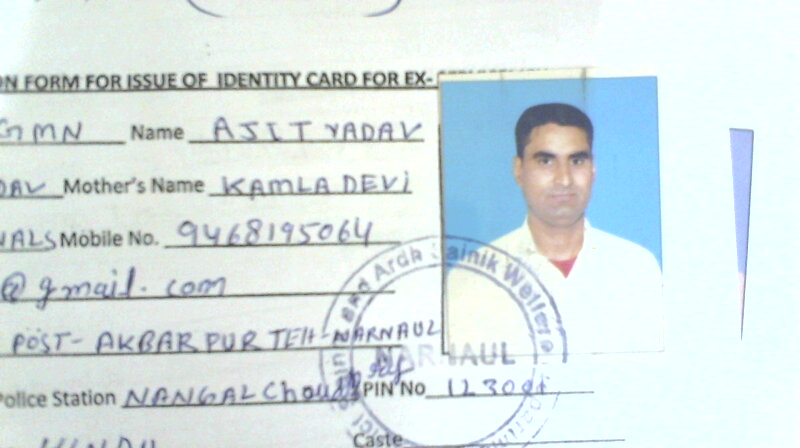 ON FORM FOR ISSUE OF IDENTITY CARD FOR EX-
GMN Name AJIT YADAV
DAV Mother's Name KAMLA DEVI
WALS Mobile No. 9468195064
@gmail.com
POST- AKBARPUR TEH- NARNAUL
Police Station NANGAL PIN No
HINDU Caste
Ardh Sainik Welfare
NARNAUL